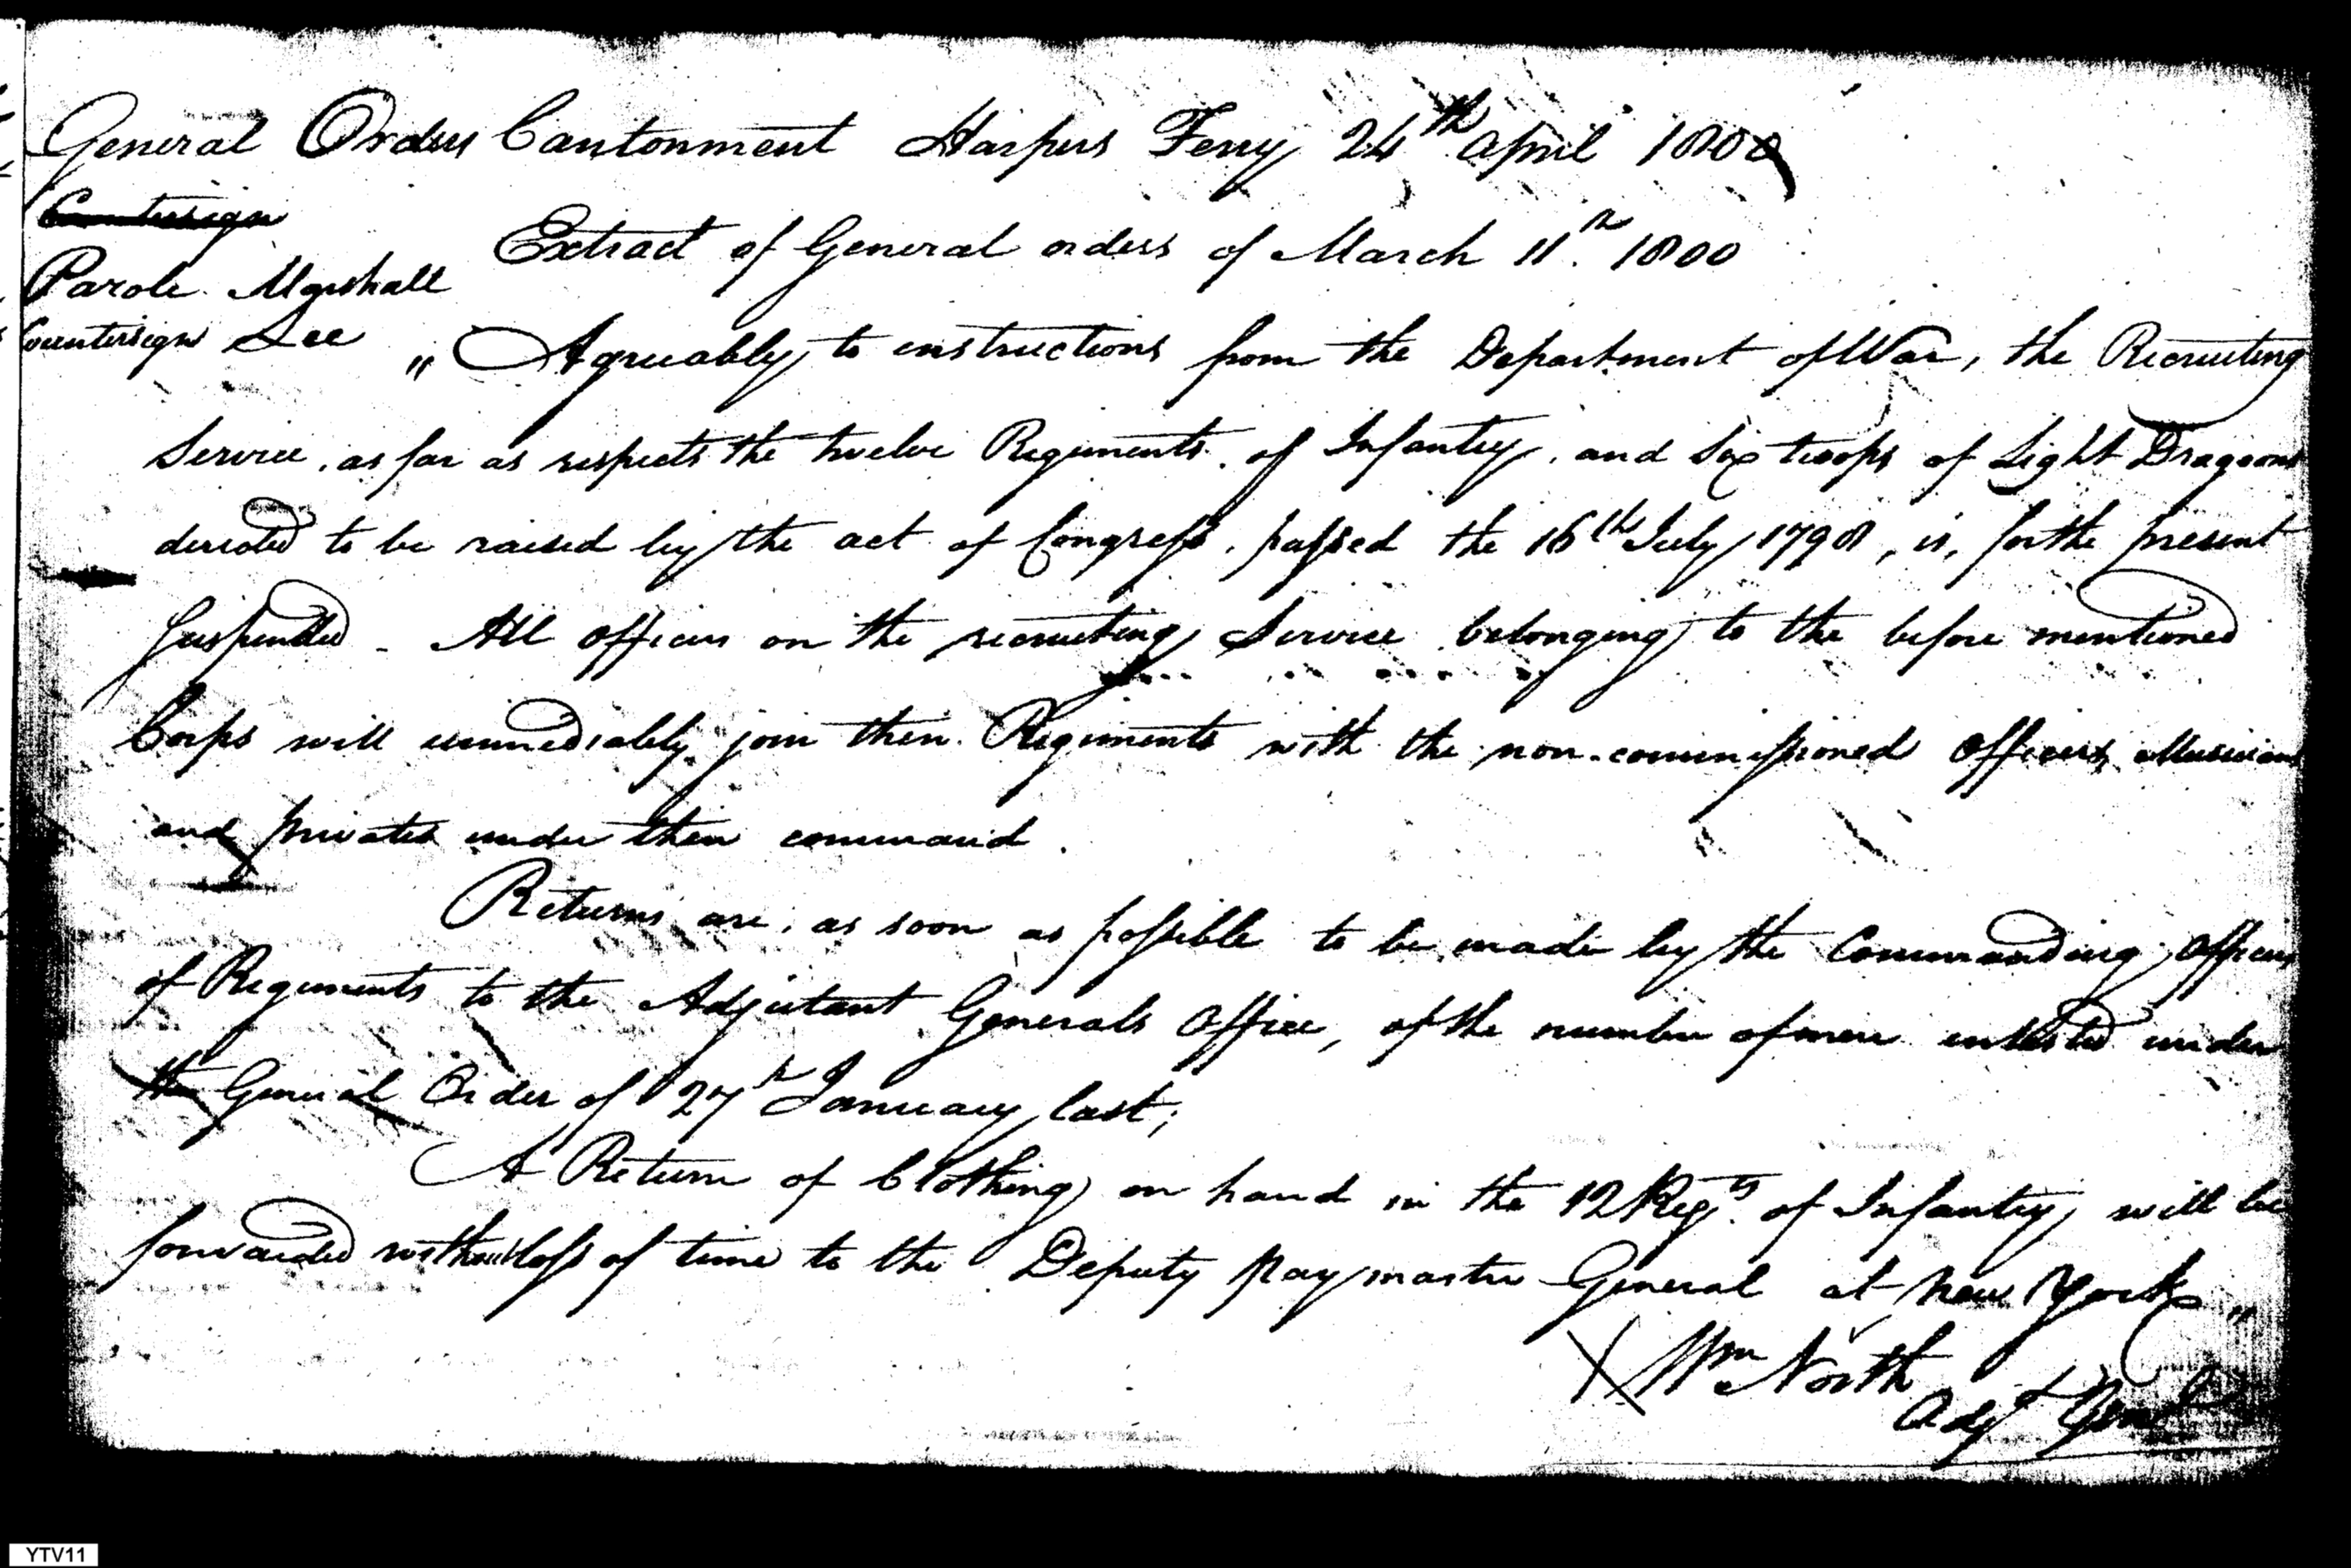 General Orders Cantonment Harpers Ferry 24th April 1800
Countersign
Extract of General orders of March 11th. 1800
Parole Marshall
Countersign Lee
„ Agreeably to instructions from the Department of War, the Recruiting
Service, as far as respects the twelve Regiments of Infantry, and Six troops of Light Dragoons
directed to be raised by the act of Congress, passed the 16th July 1798, is, for the present
Suspended - All officers on the recruiting Service belonging to the before mentioned
Corps will immediately join their Regiments with the non-commissioned officers, Musicians
and privates under their command.
Returns are, as soon as possible to be made by the Commanding officers
of Regiments to the Adjutant Generals office, of the number of men inlisted under
the General Order of 27th January last;
A Return of Clothing on hand in the 12 Regts. of Infantry will be
forwarded without loss of time to the Deputy paymaster General at New York „
X Wm North
Adjt Genl
YTV11